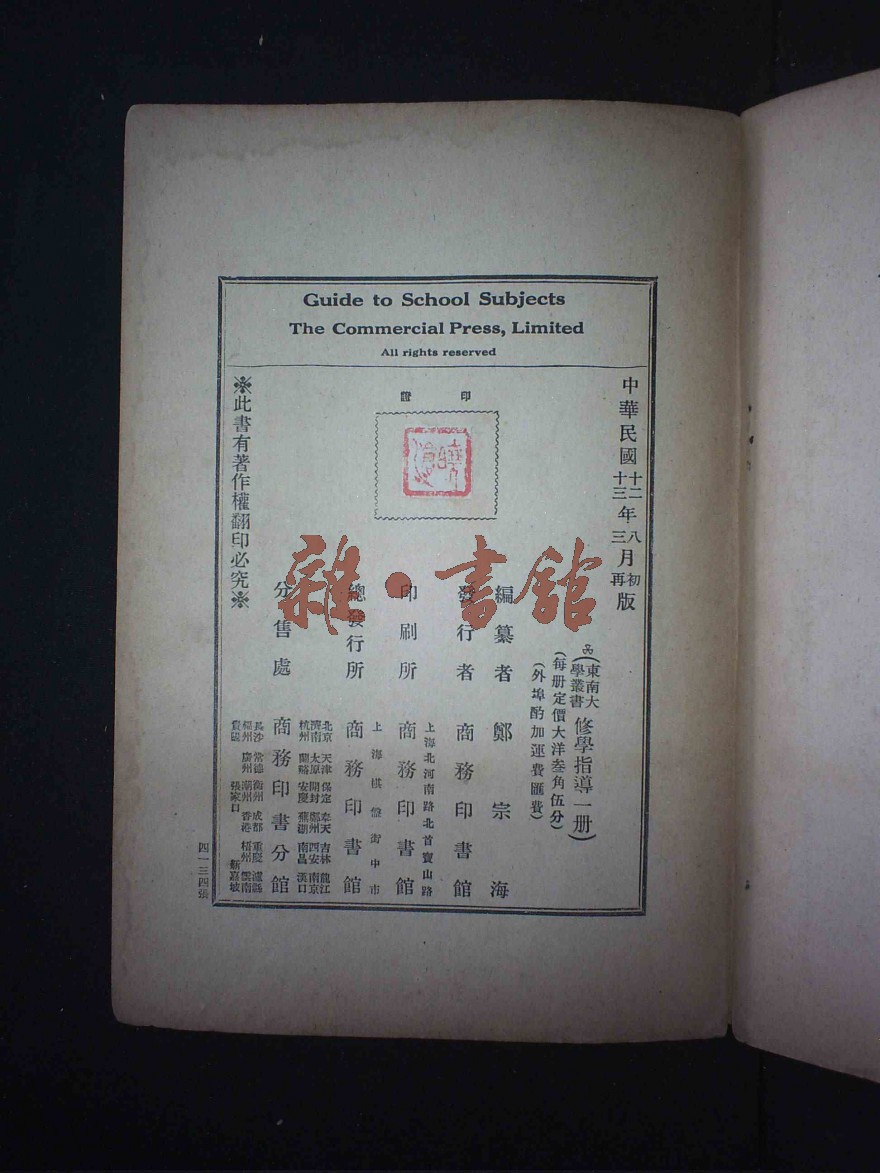 Guide to School Subjects
The Commercial Press, Limited
All rights reserved
印證
中華民國十二年八月初版
十三年三月再版
東南大學叢書
(修學指導一册)
(每册定價大洋叁角伍分)
(外埠酌加運費匯費)
編纂者 鄭宗海
發行者 商務印書館
上海北河南路北首寶山路
印刷所 商務印書館
上海棋盤街中市
總發行所 商務印書館
北京 天津 保定 奉天 吉林 龍江
濟南 太原 開封 鄭州 西安 南京
杭州 蘭谿 安慶 蕪湖 南昌 漢口
分售處 商務印書分館
長沙 常德 衡州 成都 重慶 瀘縣
福州 廣州 潮州 香港 梧州 雲南
貴陽 張家口 新嘉坡
※此書有著作權翻印必究※
四一三四張
雜·書館